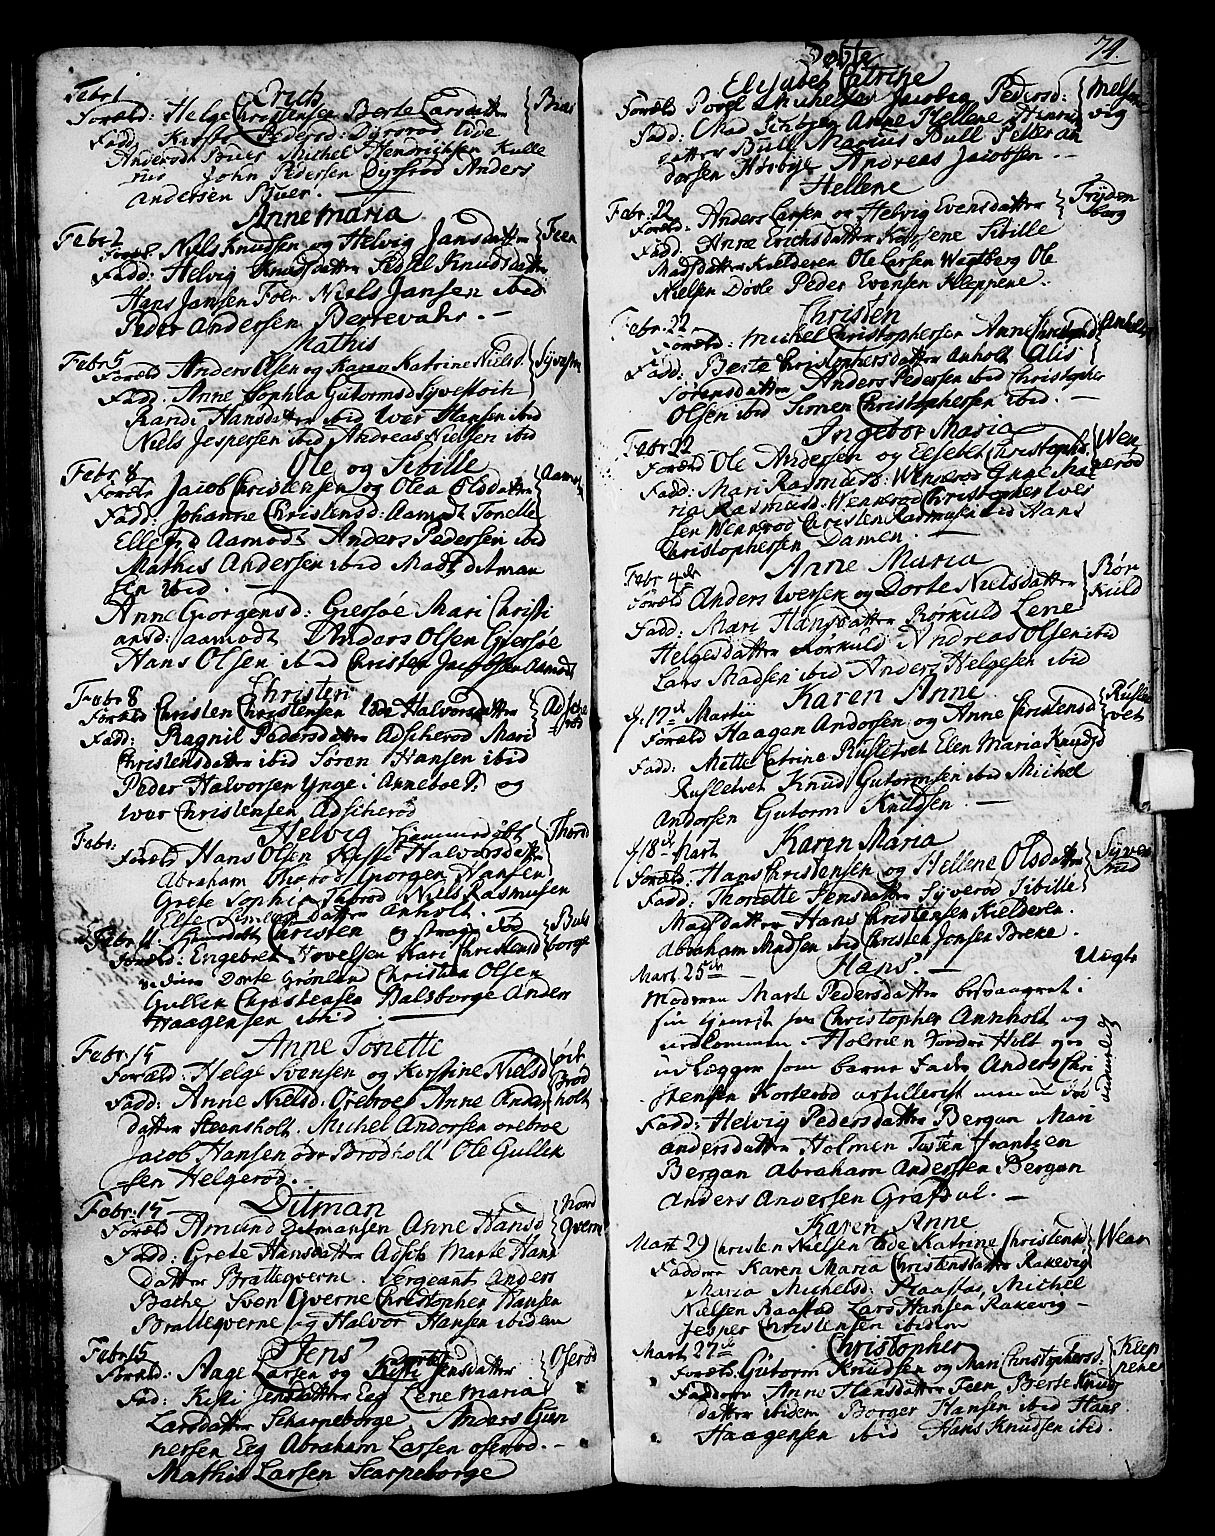 Febr 1
Erich
Foræld: Helge Christensen Berte Larsdatter
Buer
Fadd: Kirst Pedersd: Dyrsrød
Anderød Buer Michel Hendrichsen Kulle
rud John Pedersen Dyrsrød Anders
Andersen Buer.
Anne Maria
Febr 2
Foræld Niels Knudsen og Helvig Jansdatter
Feen
Fadd: Helvig Knudsdatter Sidsel Knudsdatter
Hans Jansen Foer Niels Jansen ibid
Peder Andersen Berrevahr. —
Mathis
Febr 5
Foræld Anders Olsen og Karen Katrine Nielsd.
Fadd. Anne Sophia Gutormsd
Randi Hansdatter ibid Iver Hansen ibid
Niels Jespersen ibid Andreas Nielsen ibid
Ole og Sibille
Febr 8
Foræld Jacob Christensen og Olea Olsdatter
Aamodt
Fadd: Johanne Christensd: Aamodt Tonette
Ellefsd Aamodt Anders Pedersen ibid
Mathis Andersen ibid Mads ditman
sen ibid
Anne Gorgensd: Giersøe Mari Christi
ansd: aamodt Anders Olsen Giersøe
Hans Olsen ibid Christen Jacobsen Aamodt
Christen
Febr 8
Foræld Christen Christensen Ide Halvorsdatter
Adsche
rød
Fadd: Ragnil Pedersdatter Adscherod Mari
Christensdatter ibid Søren Hansen ibid
Peder Halvorsen Ynge i Anneboet og
Iver Christensen Adscherød
Helvig hiemmedøbt
Febr:
Thorød
Foræld Hans Olsen Kisti Halvorsdatter
Abraham Thorød Gorgen Hansen
Grete Sophia Thorød Niels Rasmusen
Else datter Anholt. —
Febr 11. Christen
Buls
borge
Foræld: Engebret Hovelsen Kari Christensd
Dorte Grønland Christen Olsen
Gullen Christensen Balsborge Ander
Haagensen ibid.
Anne Tonette
Febr: 15
Foræld: Helge Svensen og Kirstine Nielsd
Brød
holt
Fadd: Anne Nielsd. Orebroe Anne Anders
datter Steansholt. Michel Andersen orebroe
Jacob Hansen Brødholt Ole Gullik
sen Helgerød. —
Ditman
Febr: 15
Nord
Qverne
Foræld Amund Ditmansen Anne Hansd
Fadd: Grete Hansdatter Marte Hans
datter Brattequerne. Sergeant Anders
Bache Sven Qverne Christopher Hansen
Brattequerne og Halvor Hansen ibidem
Jens
Febr 15
Oserød
Foræld: Aage Larsen og Jensdatter
Fad: Kisti Jensdatter Eeg Lene Maria
Larsdatter Scharpeborge Anders Gun
nersen Eeg Abraham Larsen oserød. —
Mathis Larsen Scarpeborge
Døbte
74.
Elisabet Catrine
Foræld Povel Michelsen Jacobia Pedersd:
Melsom
vig
Anne Hellene
datter Bull Marius Bull Peder An
dersen Høibye Andreas Jacobsen. —
Hellene
Febr: 22
Foræld: Anders Larsen og Helvig Evensdatter
Frydem
berg
Fadd: Anne Erichsdatter Karsene Sibille
Madsdatter Kielderen Ole Larsen Wegtberg Ole
Nielsen Døvle Peder Evensen Kleppene.
Christen
Febr: 22
Foræld: Michel Christophersen Anne Christophersd
Anholt
Fadd: Berte Christophersdatter anholt Alis
Sørensdatter Anders Pedersen ibid Christopher
Olsen ibid Simen Christophersen ibid. —
Ingebor Maria
Febr 22
Foræld Ole Andersen og Elsebet Christophs.
Wen
nerød
Fadd: Mari Rasmusd: Wennerød Gunil Ma
ria Rasmusd: Wennerod Christopher Iver
sen Wennrod Christen Rasmusen ibid Hans
Christophersen Damen. —
Anne Maria
Febr
Foræld Anders Iversen og Dorte Nielsdatter
Rør
kuld
Fadd: Mari Hansdatter Rørkuld Lene
Helgesdatter Rørkuld Andreas Olsen ibid
Lars Madsen ibid Anders Helgesen ibid
Karen Anne
d. 17d Martii
Foræld Haagen Andersen og Anne Christensd
Rusle
tvet
Fadd: Mette Catrine Rusletvet Elen Maria Knudsd
Rusletvet Knud Gutormsen ibid Michel
Andersen Gutorm Knudsen. —
Karen Maria
d 18d Mart
Foræld: Hans Christensen og Hellene Olsdatter
Fadd: Thorlette Jensdatter Syverød Sibille
Madsdatter Hans Christensen Kielderen.
Abraham Madsen ibid Christen Jonsen Breke.
Hans. —
Mart. 25de
Uægte
Moderen Marte Pedersdatter besvangret i
sin tjenest hos Christopher Annholt og
udkommen Holmen Holt og
udlægger som barne Fader Anders Chri
stensen Korterød artillerist
Fadd: Helvig Pedersdatter Bergan Mari
andersdatter Holmen Frantzen
Bergan Abraham Andersen Bergan
Anders Andersen Grafdal. —
Karen Anne
Mart 29 Christen Nielsen Ide Katrine Christensd
Wear
Faddere Karen Maria Christensdatter Rakevig
Maria Michelsd: Raastad, Michel
Nielsen Raastad Lars Hansen Rakevig —
Jesper Christensen ibidem
Christopher
Mart 27de
Foræld: Gutorm Knudsen og Mari Christophersd:
Klep
pene
Faddere Anne Hansdatter Feen Berte Knuds
datter ibidem Borger Hansen ibid Hans
Haagensen ibid Hans Knudsen ibid.